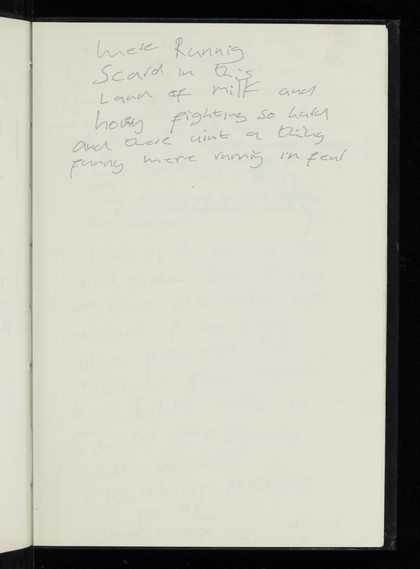 were Runnig
Scard in this
Land of milk and
hony fighting so hard
and there aint a thing
funny were runnig in fear